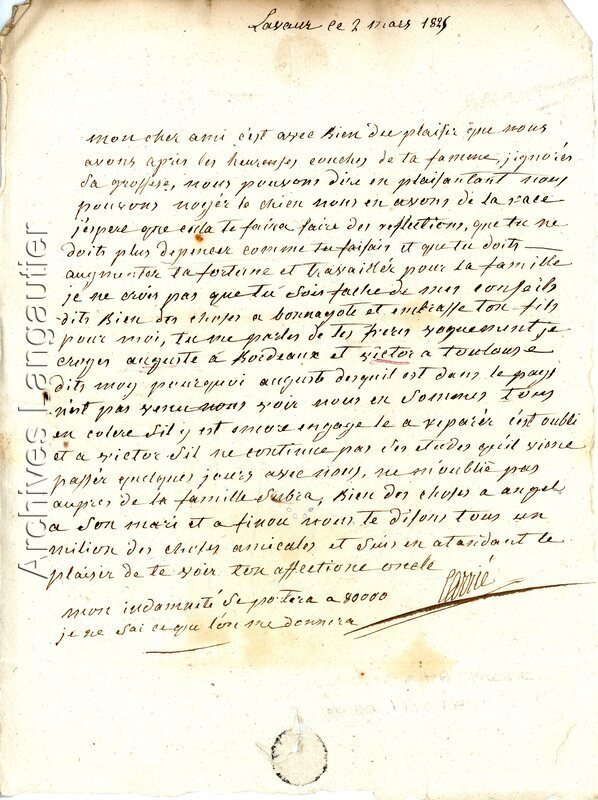 Lavaur ce 2 mars 1825
mon cher ami c'est avec Bien du plaisir que nous
avons apris les heureuses couches de ta famme, j'ignorés
sa grossesse, nous pouvons dire en plaisantant nous
pouvons noyér le chien nous en avons de la race
j'espere que cela te faira faire des reflections, que tu ne
doits plus depencer comme tu faisais et que tu doits
augmenter ta fortune et travaillér pour ta famille
je ne crois pas que tu sois fathé de mes conseils
dits Bien des choses a bonnayote et embrasse ton fils
pour moi, tu me parles de tes freres voguement je
croyes auguste à Bordeaux et victor a toulouse
dits moy pourquoi auguste desquil est dans le pays
n'est pas venu nous voir nous en sommes tous
en colere s'il y est encore engage le a reparér c'est oubli
et a victor s'il ne continue pas ses etudes qu'il viene
passér quelques jours avec nous, ne m'oublie pas
aupres de la famille Subra, Bien des choses a angel
a son mari et a finou nous te disons tous un
milion des choses amicales et suis en atandant le
plaisir de te voir ton affectione oncle
Carrié
mon indamnité se portera a 80000
je ne sai ce que l'on me donnera
Archives Langautier